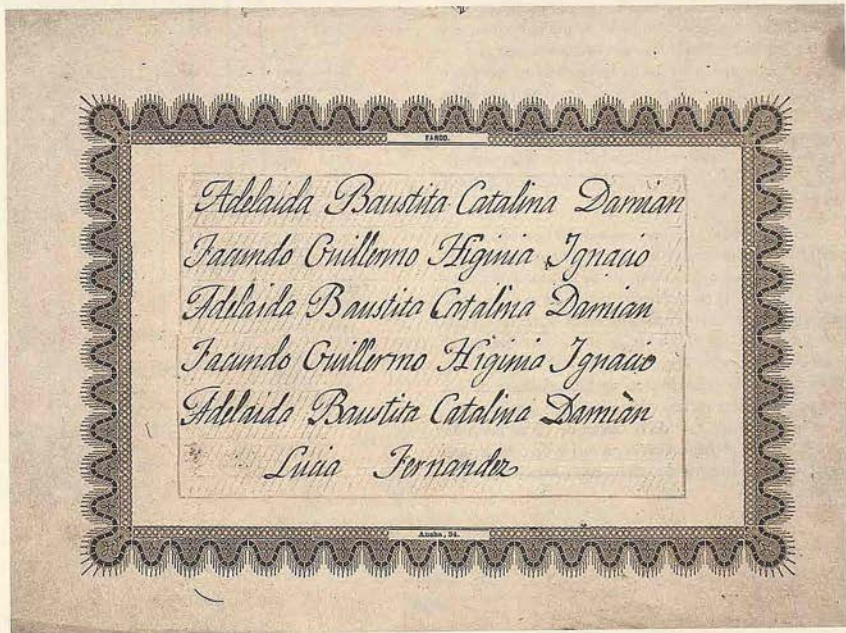 FANDO.
Adelaida Baustita Catalina Damian
Facundo Guillermo Higinia Ignacio
Adelaida Baustita Catalina Damian
Facundo Guillermo Higinia Ignacio
Adelaida Baustita Catalina Damiàn
Lucia Fernandez
Ancha, 94.